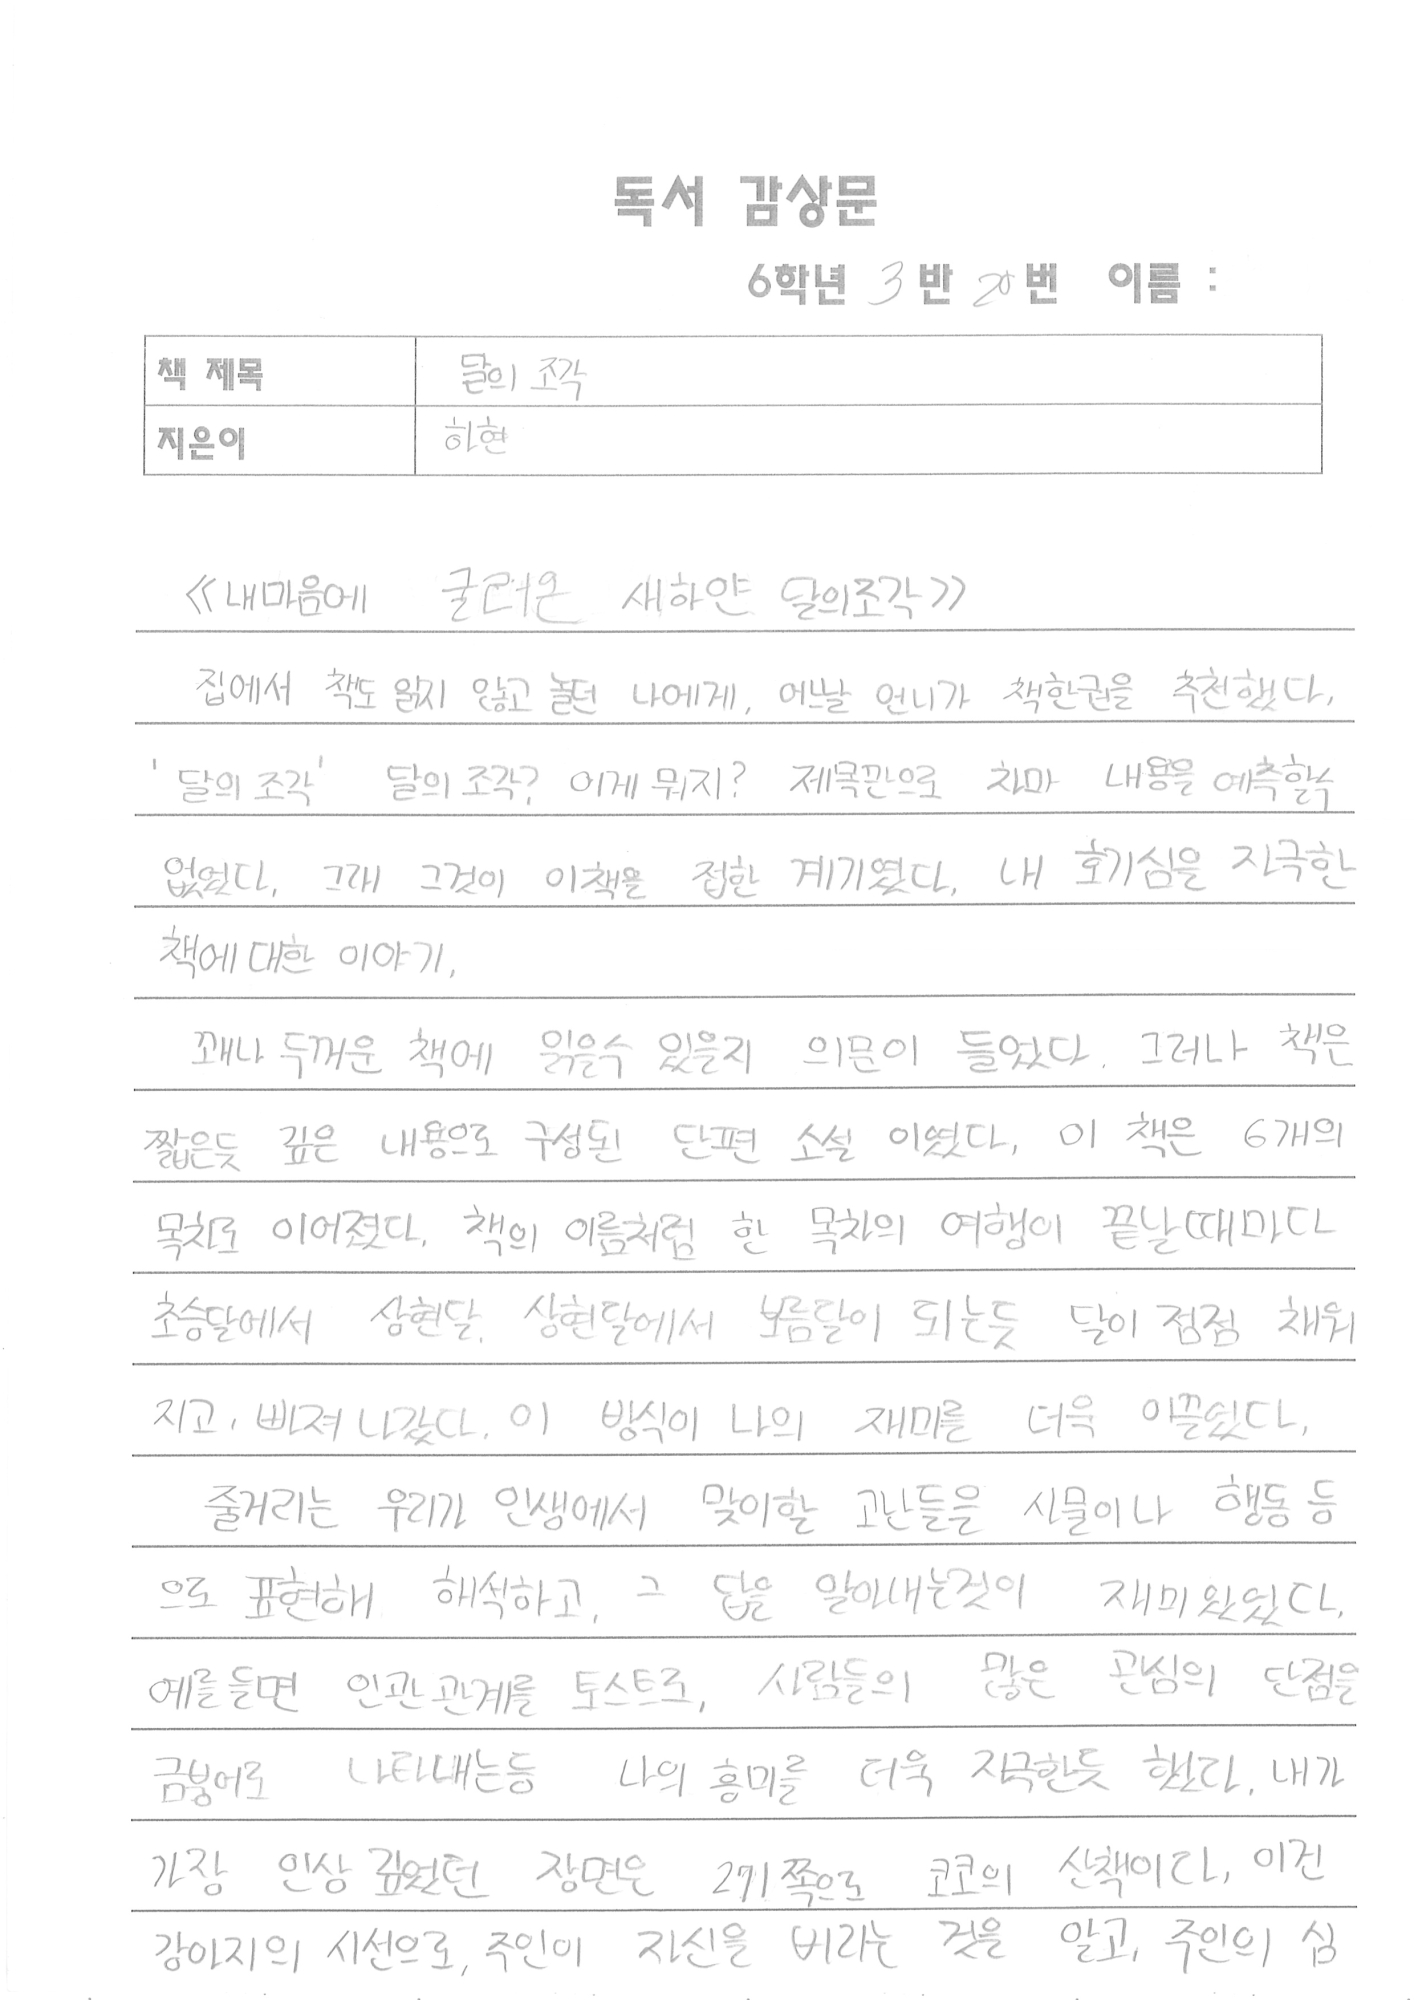 독서 감상문
6학년 3 반 20 번 이름 :
책 제목 달의 조각
지은이 하현
《내마음에 굴러온 새하얀 달의조각》
집에서 책도 읽지 않고 놀던 나에게, 어느날 언니가 책한권을 추천했다.
'달의 조각' 달의 조각? 이게 뭐지? 제목만으로 차마 내용을 예측할수
없었다. 그래 그것이 이책을 접한 계기였다. 내 호기심을 지극한
책에 대한 이야기.
꽤나 두꺼운 책에 읽을수 있을지 의문이 들었다. 그러나 책은
짧은듯 깊은 내용으로 구성된 단편 소설 이였다. 이 책은 6개의
목차로 이어졌다. 책의 이름처럼 한 목차의 여행이 끝날때마다
초승달에서 상현달, 상현달에서 보름달이 되는듯 달이 점점 채워
지고, 빠져 나갔다. 이 방식이 나의 재미를 더욱 이끌었다.
줄거리는 우리가 인생에서 맞이할 고난들을 사물이나 행동 등
으로 표현해 해석하고, 그 답을 알아내는것이 재미있었다.
예를 들면 인관 관계를 토스트로, 사람들의 많은 관심의 단점을
금붕어로 나타내는등 나의 흥미를 더욱 지극한듯 했다. 내가
가장 인상 깊었던 장면은 271쪽으로 코코의 산책이다. 이건
강아지의 시선으로, 주인이 자신을 버리는 것을 알고, 주인의 심